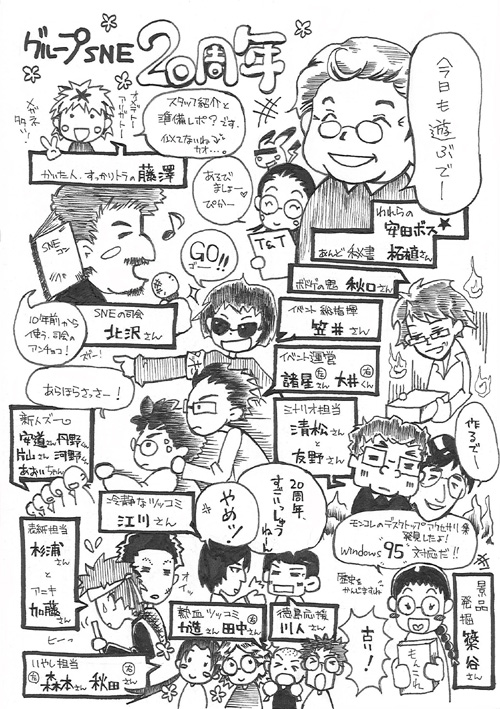 グループSNE 20周年
今日も遊ぶでー
スタッフ紹介と
準備レポ？です。
似てないねる
カオ…。
オメデトー
アリガトー
メガネ
かいた人、すっかりトラの 藤澤
あるで
ましょー
ぴかー
T&T
われらの
安田ボス★
あんど秘書 柘植さん
SNE
GO!!
ゴー!!
ボドゲの君 秋口さん
SNEの司会
北沢さん
10年前から
使う、司会の
アンチョコ！
イベント総指揮
笠井さん
イベント運営
諸星左さん 大井右くん
ズビー！
あらほらさっさー！
新人ズ
安道さん 丹野くん
片山さん 河野くん
あおいちゃん
シナリオ担当
清松さん
と
友野さん
作るで
冷静なツッコミ
江川さん
やめッ！
20周年、
すごいっしゅう
ねーん
モンコレのデスクトップアクセサリ集
発見したよ！
Windows "95" 対応だ!!
歴史を
かんじますね
古い！
景品
発掘 築谷さん
もんこれ
表紙担当
杉浦さん
と
アニキ
加藤さん
オーッ
ヒーッ
熱血ツッコミ
力造さん左 田中右さん
徳島応援
川人さん
いやし担当
左森本さん 秋田右さん